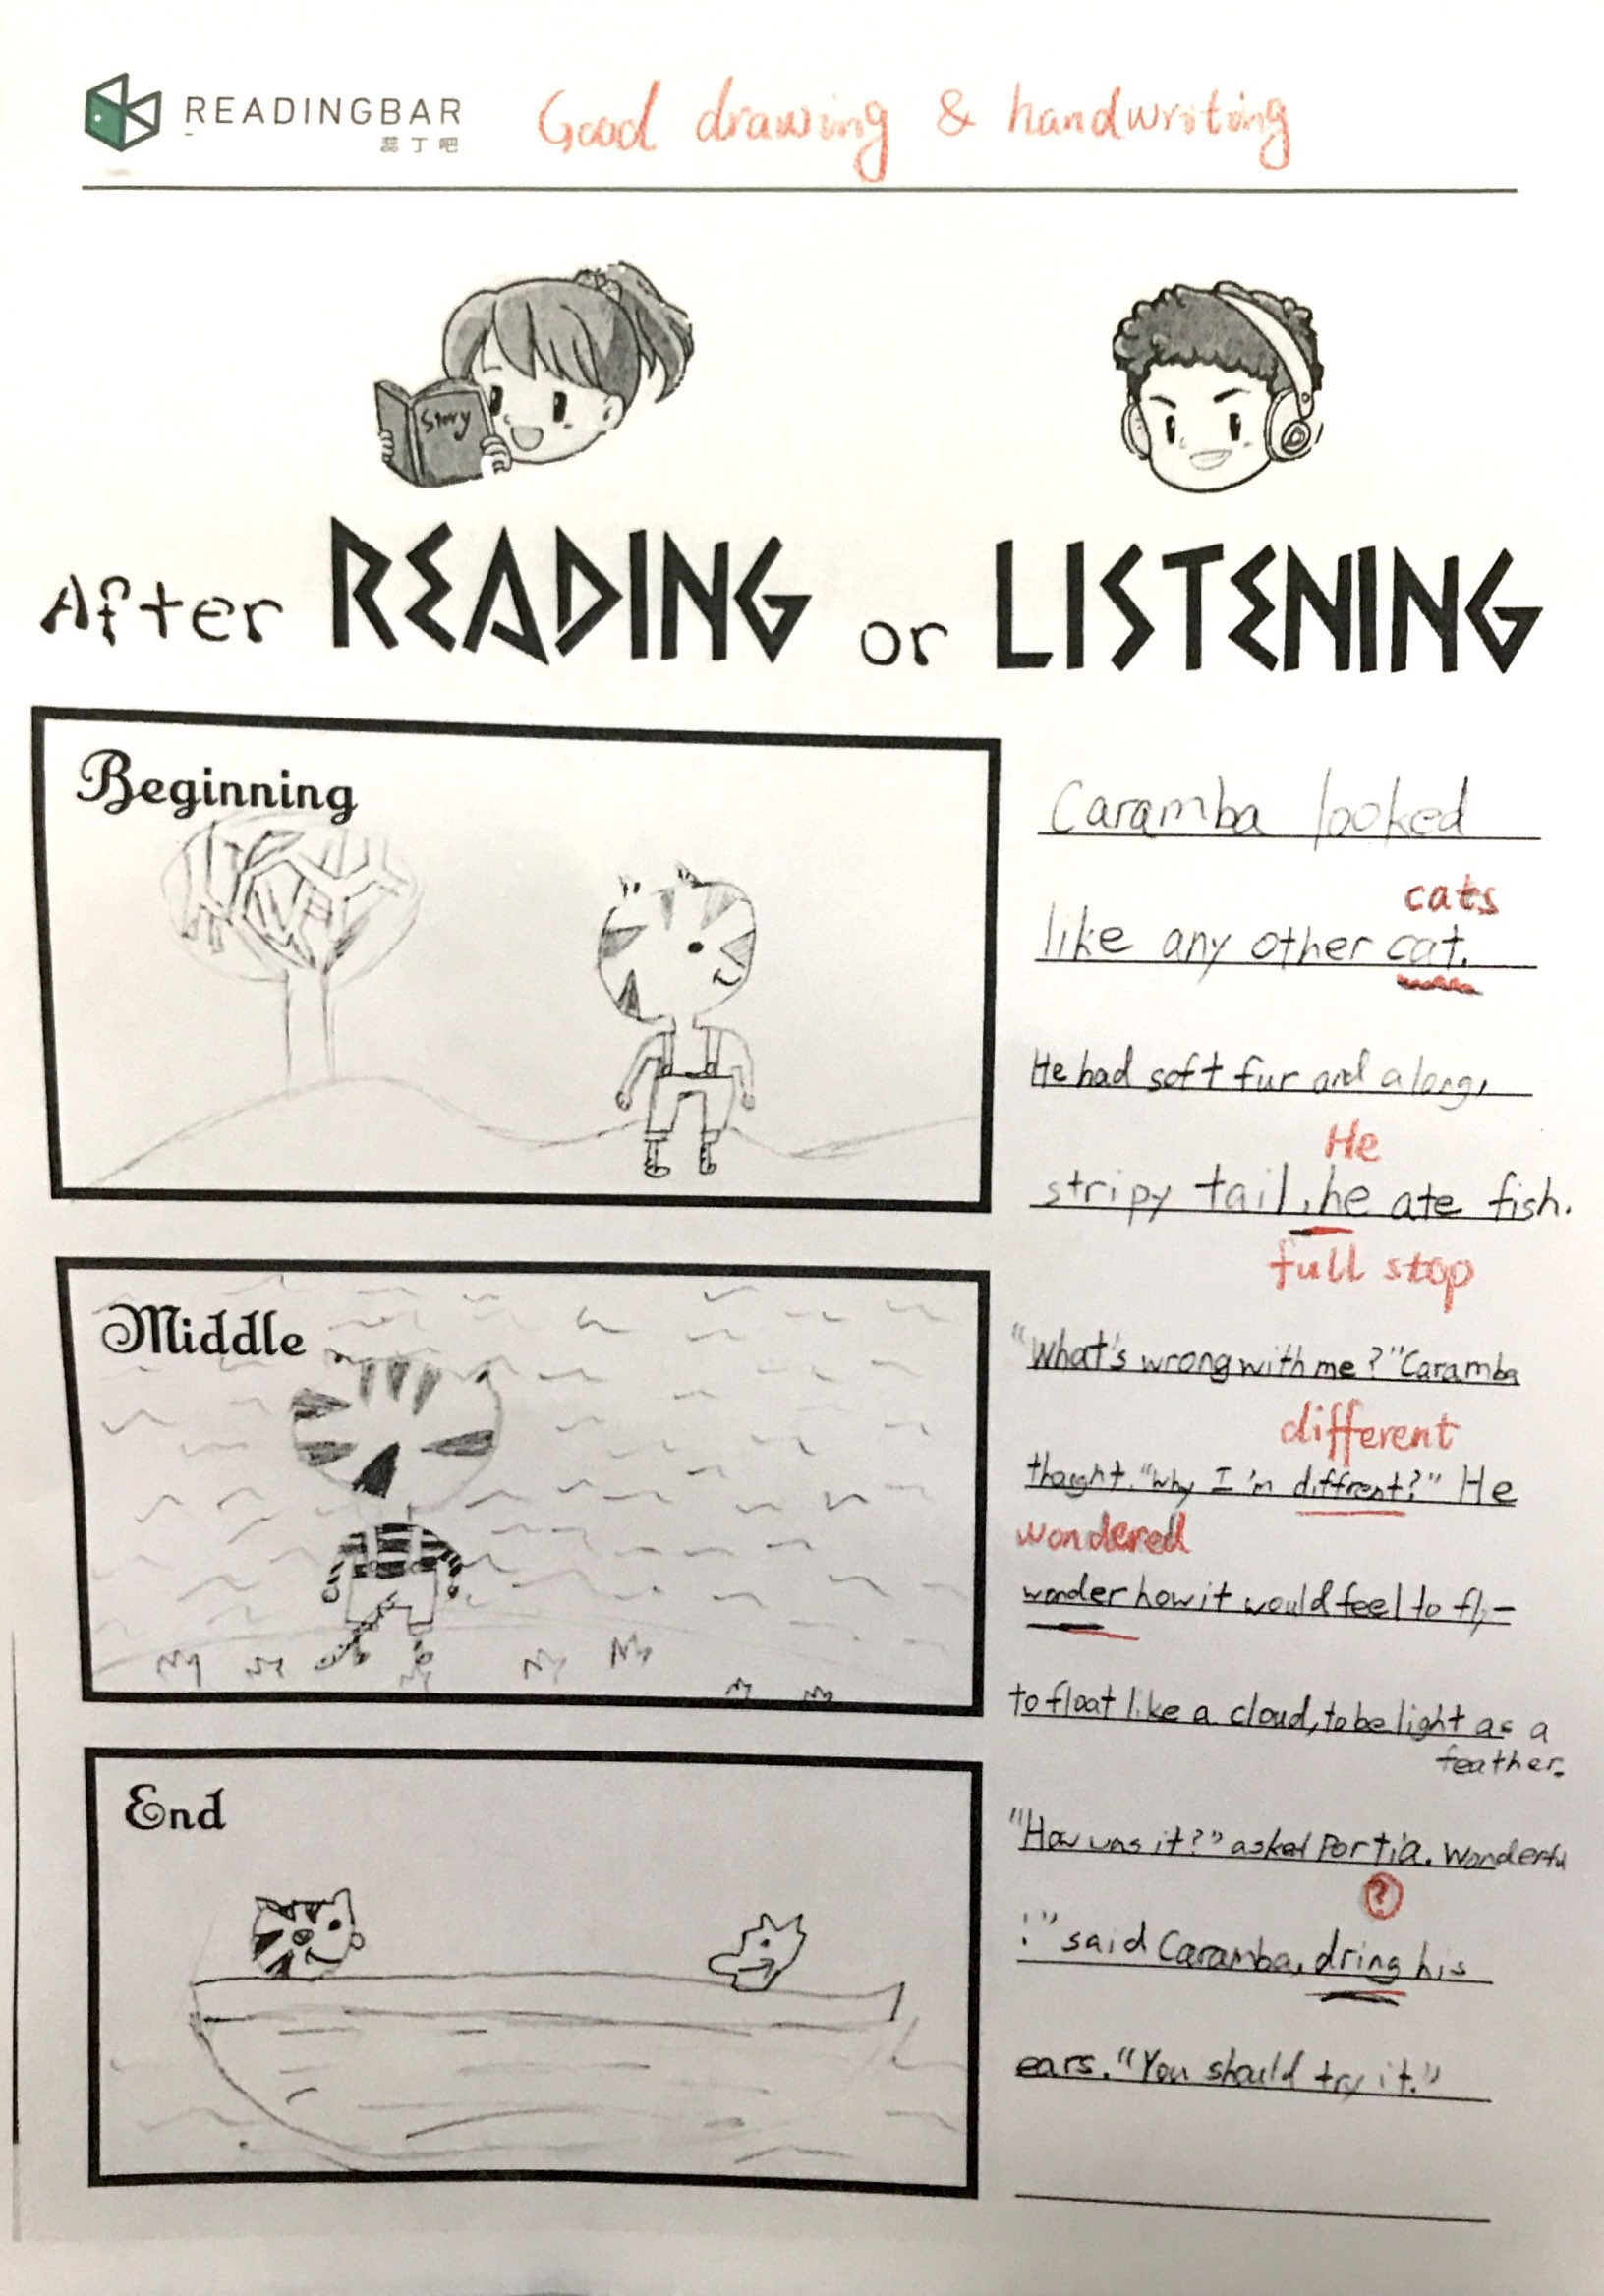 READINGBAR
蕊丁吧
Good drawing & handwriting
Story
After READING or LISTENING
Beginning
Caramba looked
cats
like any other cat.
He had soft fur and a long,
He
stripy tail, he ate fish.
full stop
Middle
"What's wrong with me?" Caramba
different
thought. "Why I'm diffrent?" He
wondered
wonder how it would feel to fly-
to float like a cloud, to be light as a
feather.
End
"How was it?" asked Portia. Wonderful
?
!" said Caramba, dring his
ears. "You should try it."